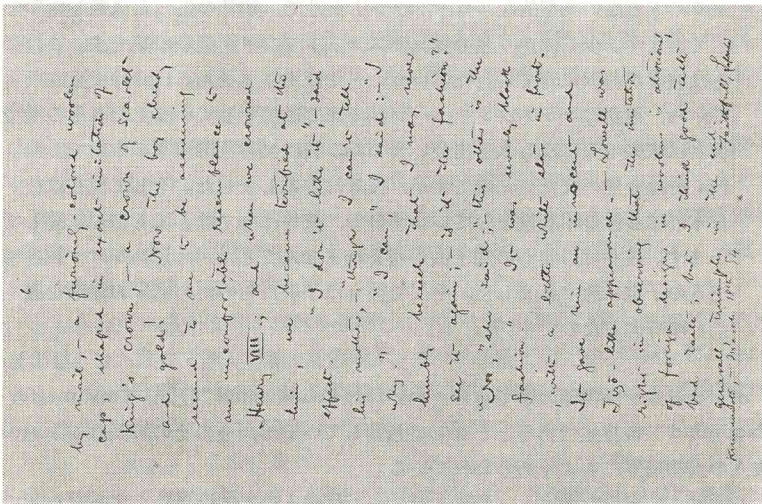 by mail, — a colored woolen
cap shaped in exact imitation of
King's crown, — a crown of scarlet
and gold! Now the boy already
seemed to me to be assuming
an uncomfortable resemblance to
Henry VIII; and when we crowned
him, we became terrified at the
effect. "I don't like it", — said
his mother, "though I can't tell
why." "I can" I said: — I
humbly beseech that I may never
see it again; is it the fashion?"
"No," she said; "this other is the
fashion". It was wooly, black
with a little white in front.
It gave him an innocent and
-like appearance. — Lowell was
right in observing that the
of foreign designs in woolens is
bad taste; but I think good taste
generally triumphs in the end.
Faithfully yours
March